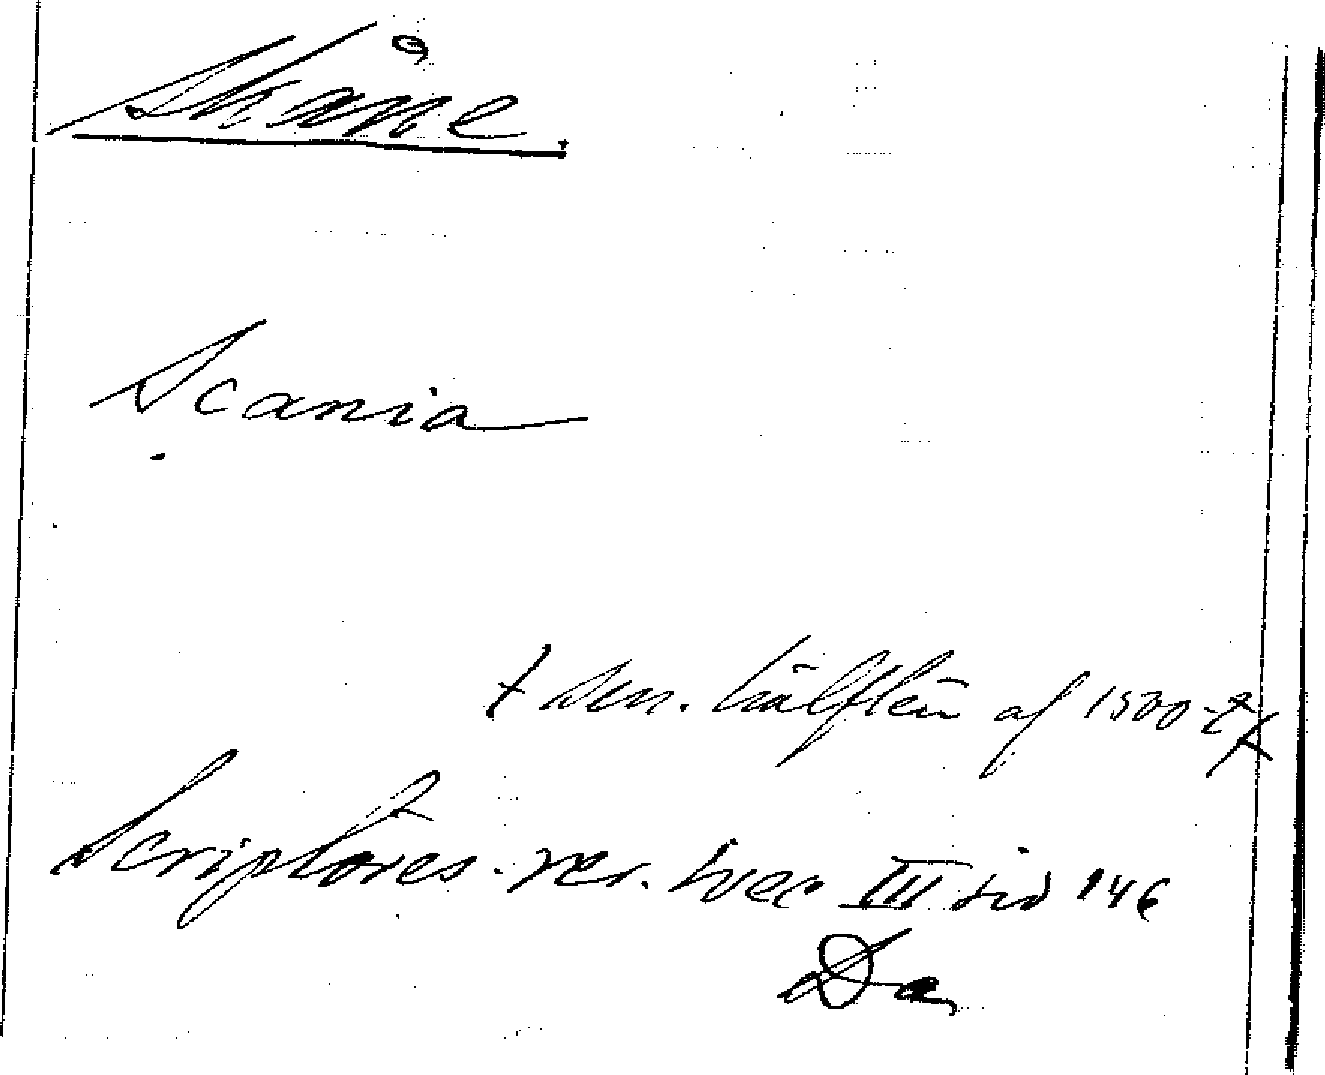 Skåne.
Scania
sen. hälften af 1500-t
Scriptores rer. svec III sid 146
Da